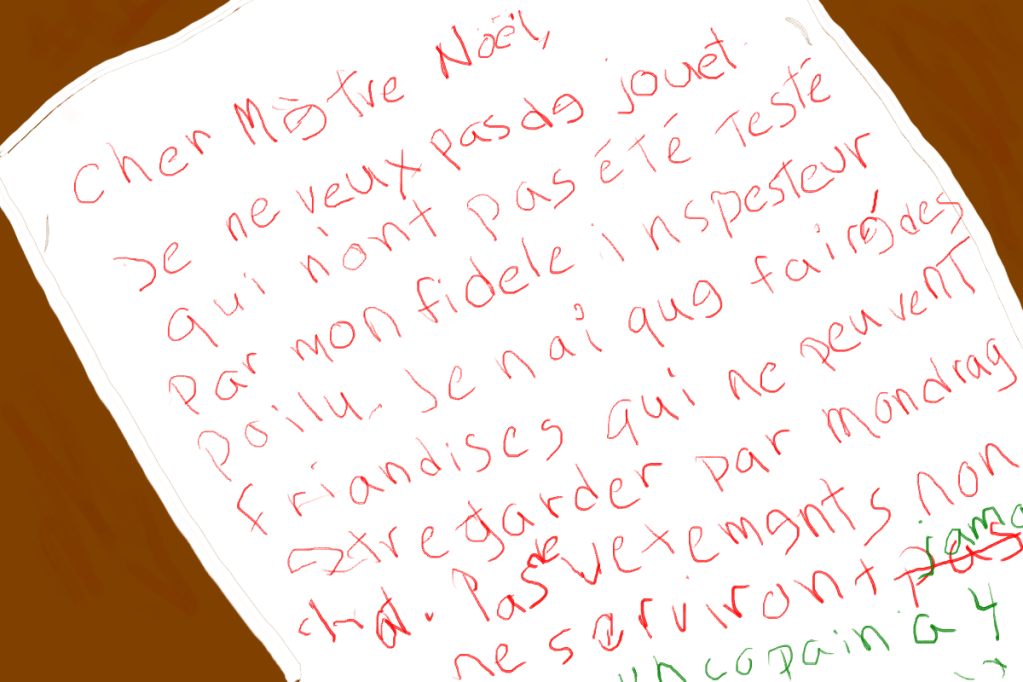 Cher Mètre Noël,
Je ne veux pas de jouet
qui n'ont pas été testé
par mon fidele inspesteur
poilu. Je n ai que faire des
friandises qui ne peuvent
etre garder par mon drag
chat. Pas de vetements non
ne serviront pas jama
un copain a 4